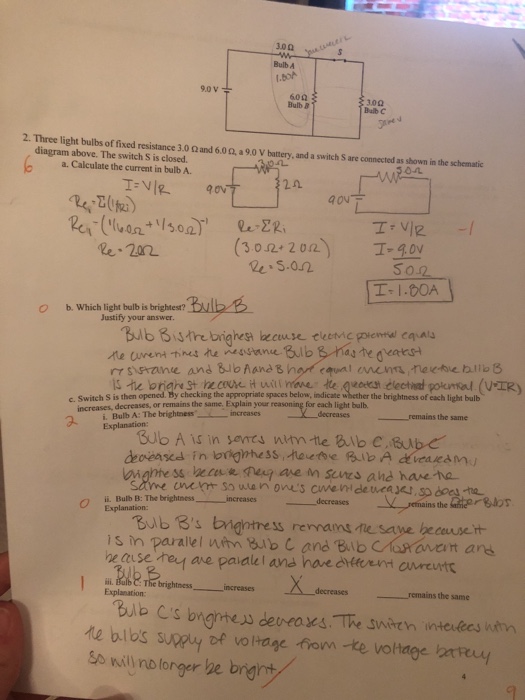 3.0 Ω
S
Bulb A
1.80A
9.0 V
6.0 Ω
Bulb B
3.0 Ω
Bulb C
2. Three light bulbs of fixed resistance 3.0 Ω and 6.0 Ω, a 9.0 V battery, and a switch S are connected as shown in the schematic
diagram above. The switch S is closed.
6
a. Calculate the current in bulb A.
I = V/R
9.0V
2Ω
9.0V
5.0Ω
Req = Σ(1/Ri)
Req = (1/6.0Ω + 1/3.0Ω)⁻¹
Re = 2.0Ω
Re = ΣRi
(3.0Ω + 2.0Ω)
Re = 5.0Ω
I = V/R
-1
I = 9.0V
5.0Ω
I = 1.80A
0
b. Which light bulb is brightest? Bulb B
Justify your answer.
Bulb B is the brightest because electric potential equals
the current times the resistance. Bulb B has the greatest
resistance and Bulb A and B have equal currents, therefore Bulb B
is the brightest because it will have the greatest electrical potential (V=IR)
c. Switch S is then opened. By checking the appropriate spaces below, indicate whether the brightness of each light bulb
increases, decreases, or remains the same. Explain your reasoning for each light bulb.
2
i. Bulb A: The brightness increases decreases remains the same
Explanation:
Bulb A is in series with the Bulb C. Bulb C
decreased in brightness, therefore Bulb A decreased in
brightness because they are in series and have the
same current so when one's current decreases, so does the
other Bulbs.
0
ii. Bulb B: The brightness increases decreases X remains the same
Explanation:
Bulb B's brightness remains the same because it
is in parallel with Bulb C and Bulb C lost current and
because they are parallel and have different currents
Bulb B
1
iii. Bulb C: The brightness increases X decreases remains the same
Explanation:
Bulb C's brightness decreases. The switch interferes with
the bulb's supply of voltage from the voltage battery
so will no longer be bright
4
9